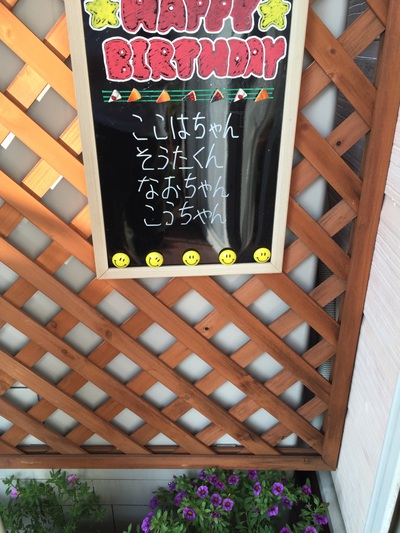 HAPPY
BIRTHDAY
ここはちゃん
そうたくん
なおちゃん
こうちゃん